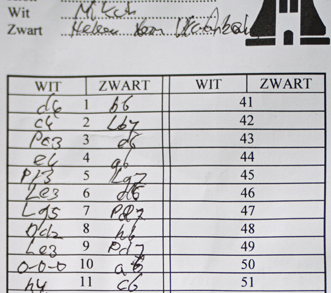 Wit
Zwart
WIT ZWART WIT ZWART
d4 1 b6 41
c4 2 Lb7 42
Pc3 3 d6 43
e4 4 g6 44
Pf3 5 Lg7 45
Le3 6 46
Lg5 7 Pd7 47
Dd2 8 h6 48
Le3 9 49
0-0-0 10 a6 50
h4 11 c6 51